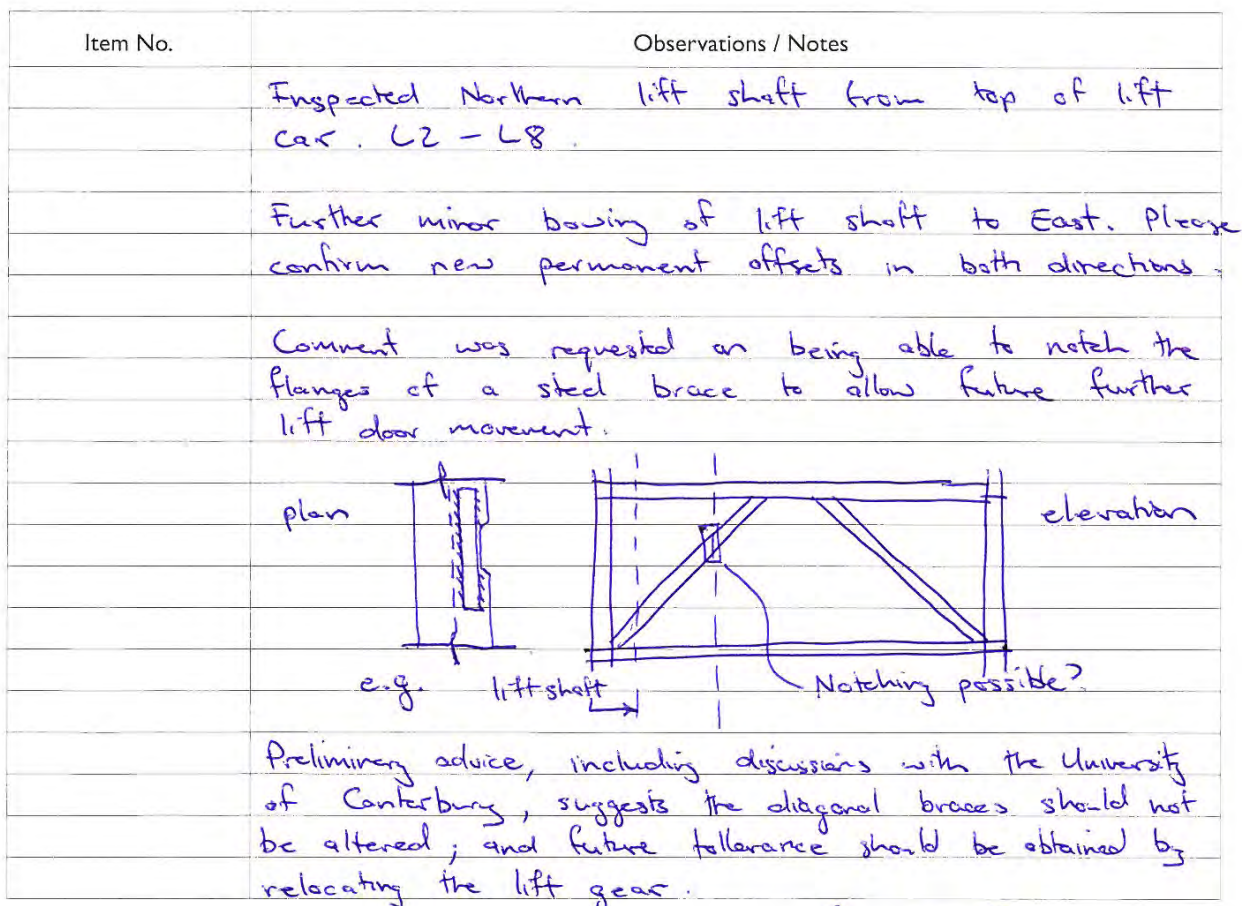 Item No. Observations / Notes
Inspected Northern lift shaft from top of lift
car. L2 - L8.
Further minor bowing of lift shaft to East. Please
confirm new permanent offsets in both directions.
Comment was requested on being able to notch the
flanges of a steel brace to allow future further
lift door movement.
plan elevation
e.g. lift shaft Notching possible?
Preliminery advice, including discussions with the University
of Canterbury, suggests the diagonal braces should not
be altered; and future tollerance should be obtained by
relocating the lift gear.